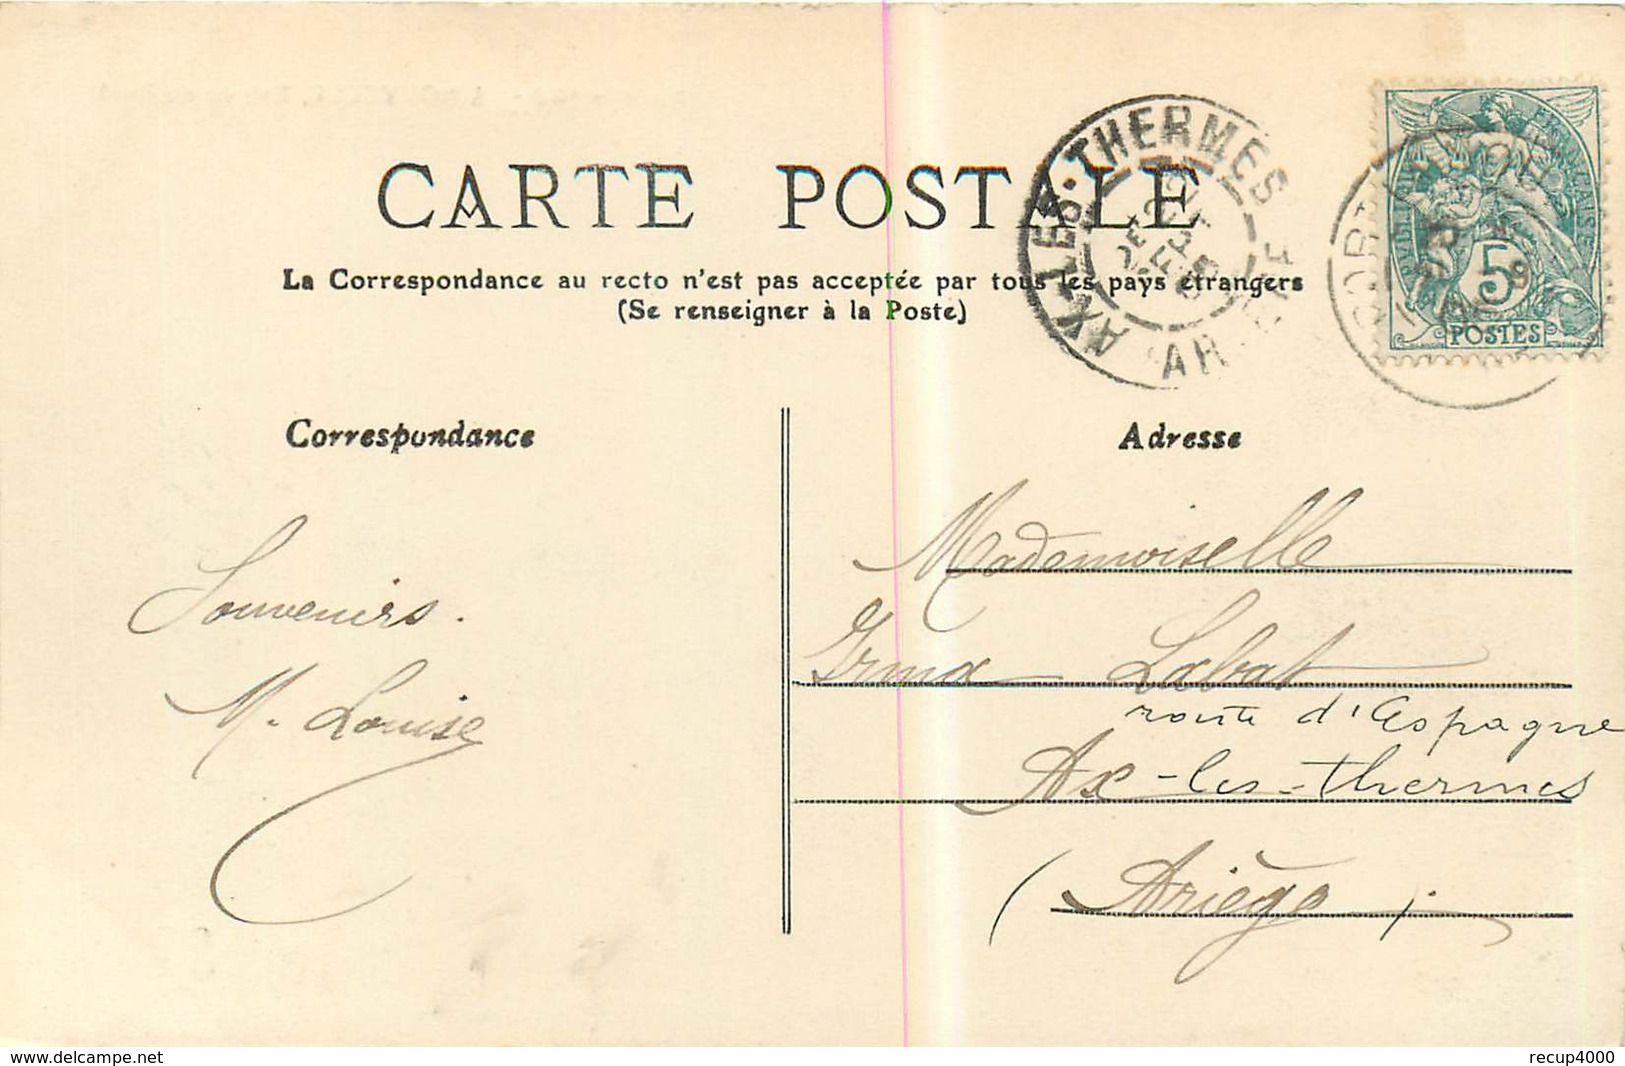 CARTE POSTALE
La Correspondance au recto n'est pas acceptée par tous les pays étrangers
(Se renseigner à la Poste)
AX-LES-THERMES
ARIEGE
5
POSTES
Correspondance
Souvenirs.
M. Louise
Adresse
Mademoiselle
Irma Labat
route d'Espagne
Ax-les-thermes
(Ariège).
www.delcampe.net
recup4000